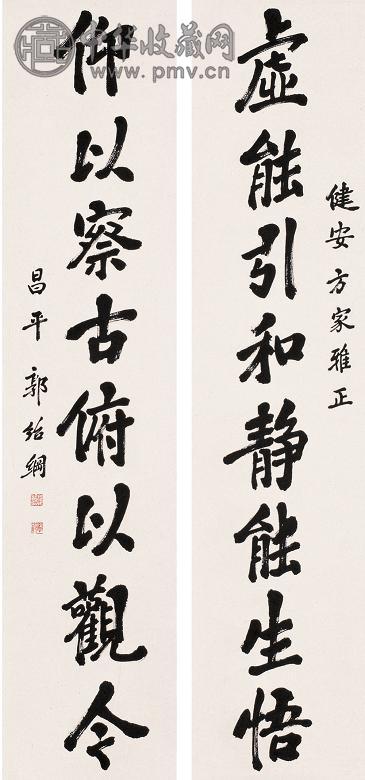 健安方家雅正
虛能引和靜能生悟
仰以察古俯以觀今
昌平郭紹綱
中华收藏网
www.pmv.cn